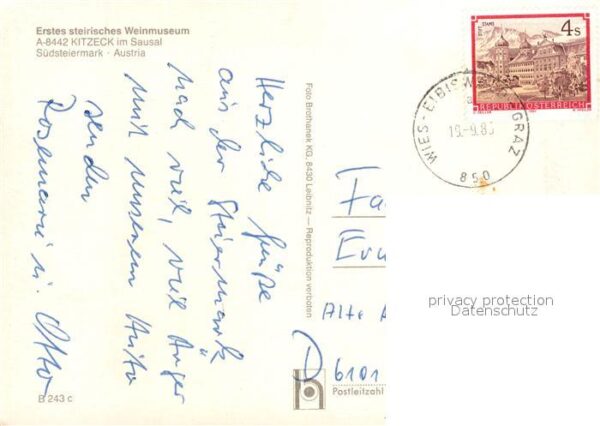 Erstes steirisches Weinmuseum
A-8442 KITZECK im Sausal
Südsteiermark · Austria
Herzliche Grüße
aus der Steiermark
nach viel, viel Ärger
mit unserem Auto
senden
Rosemarie u. Otto
B 243 c
Foto Brothanek KG, 8430 Leibnitz — Reproduktion verboten
STIFT STAMS
4 S
REPUBLIK ÖSTERREICH
WIES-EIBISWALD GRAZ
19.-9.85
850
Fa
Alte
D 6101
Postleitzahl
privacy protection
Datenschutz